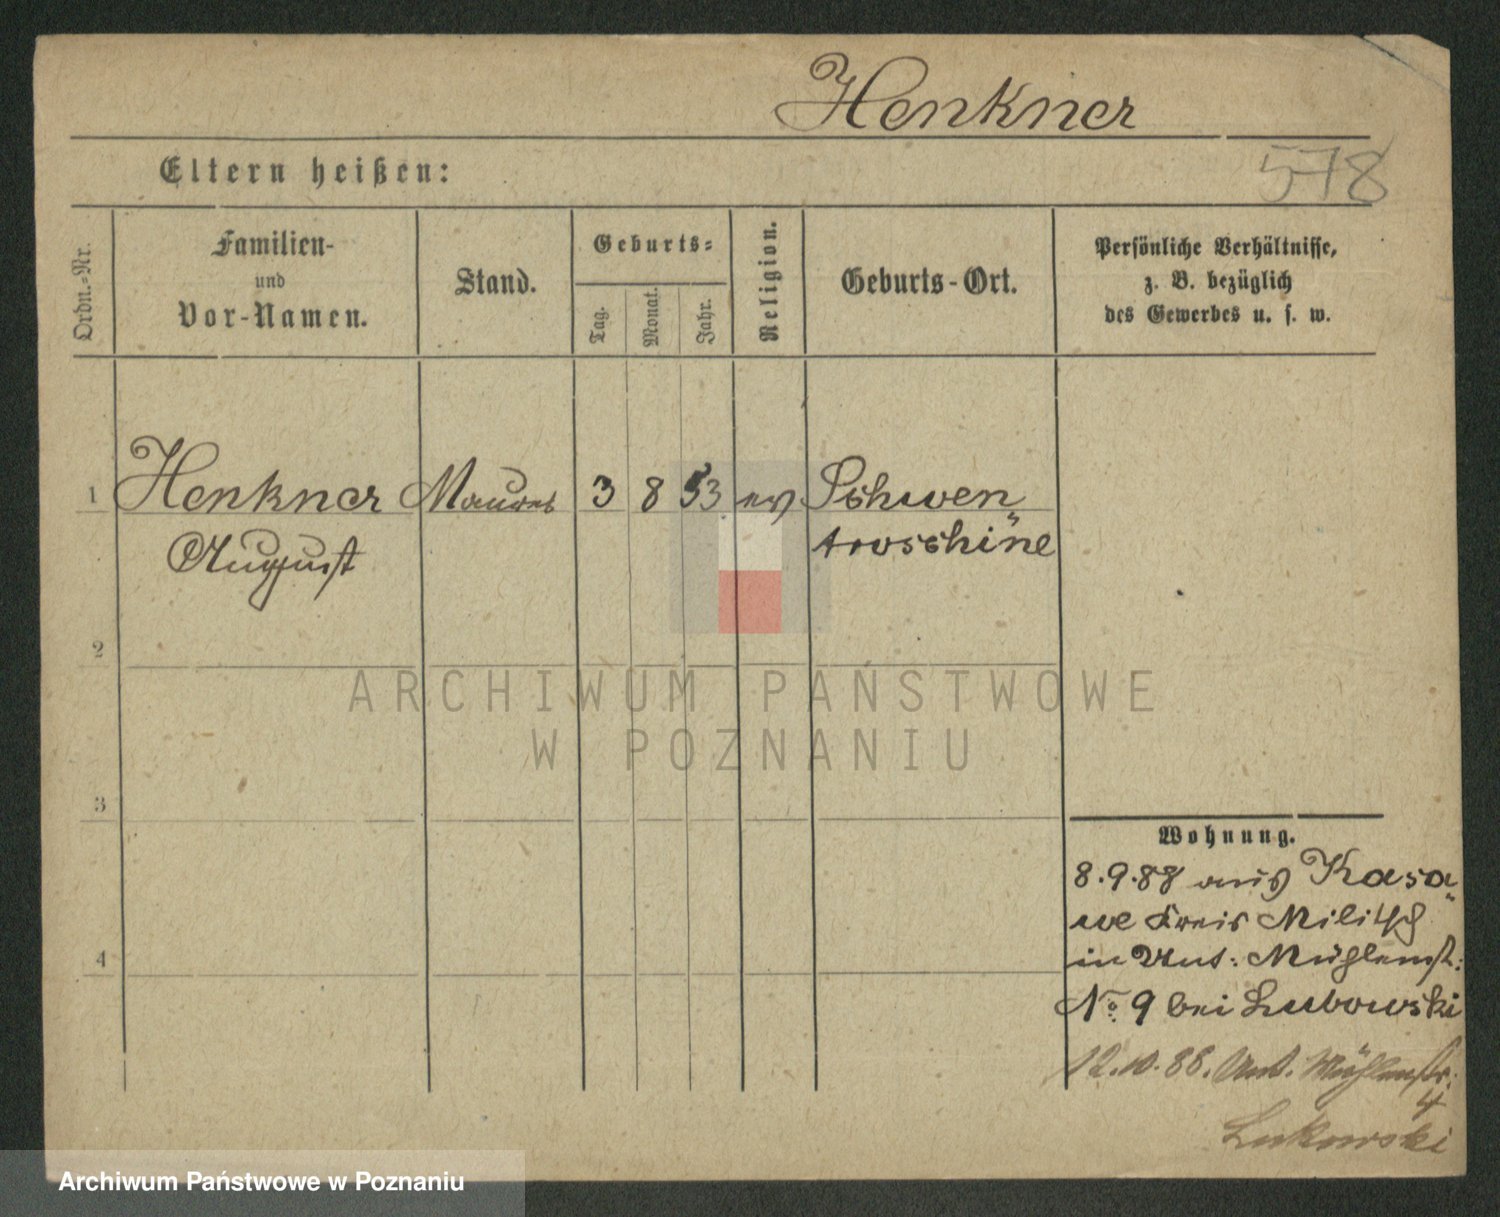 Henkner
578
Eltern heißen:
Ordn.-Nr.
Familien-
und
Vor-Namen.
Stand.
Geburts=
Tag.
Monat.
Jahr.
Religion.
Geburts-Ort.
Persönliche Verhältnisse,
z. B. bezüglich
des Gewerbes u. s. w.
1 Henkner Maurer 3 8 53 ev Schwen„
August troschine
2
3
4
Wohnung.
8.9.88 aus Kasa„
we Kreis Militsch
in Unt: Mühlenst:
No 9 bei Lubowski
12.10.88. Unt. Mühlenstr.
4
Lukowski
ARCHIWUM PAŃSTWOWE
W POZNANIU
Archiwum Państwowe w Poznaniu